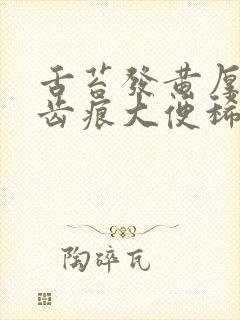 舌苔發黄厚
齿痕大便稀
陶碎瓦